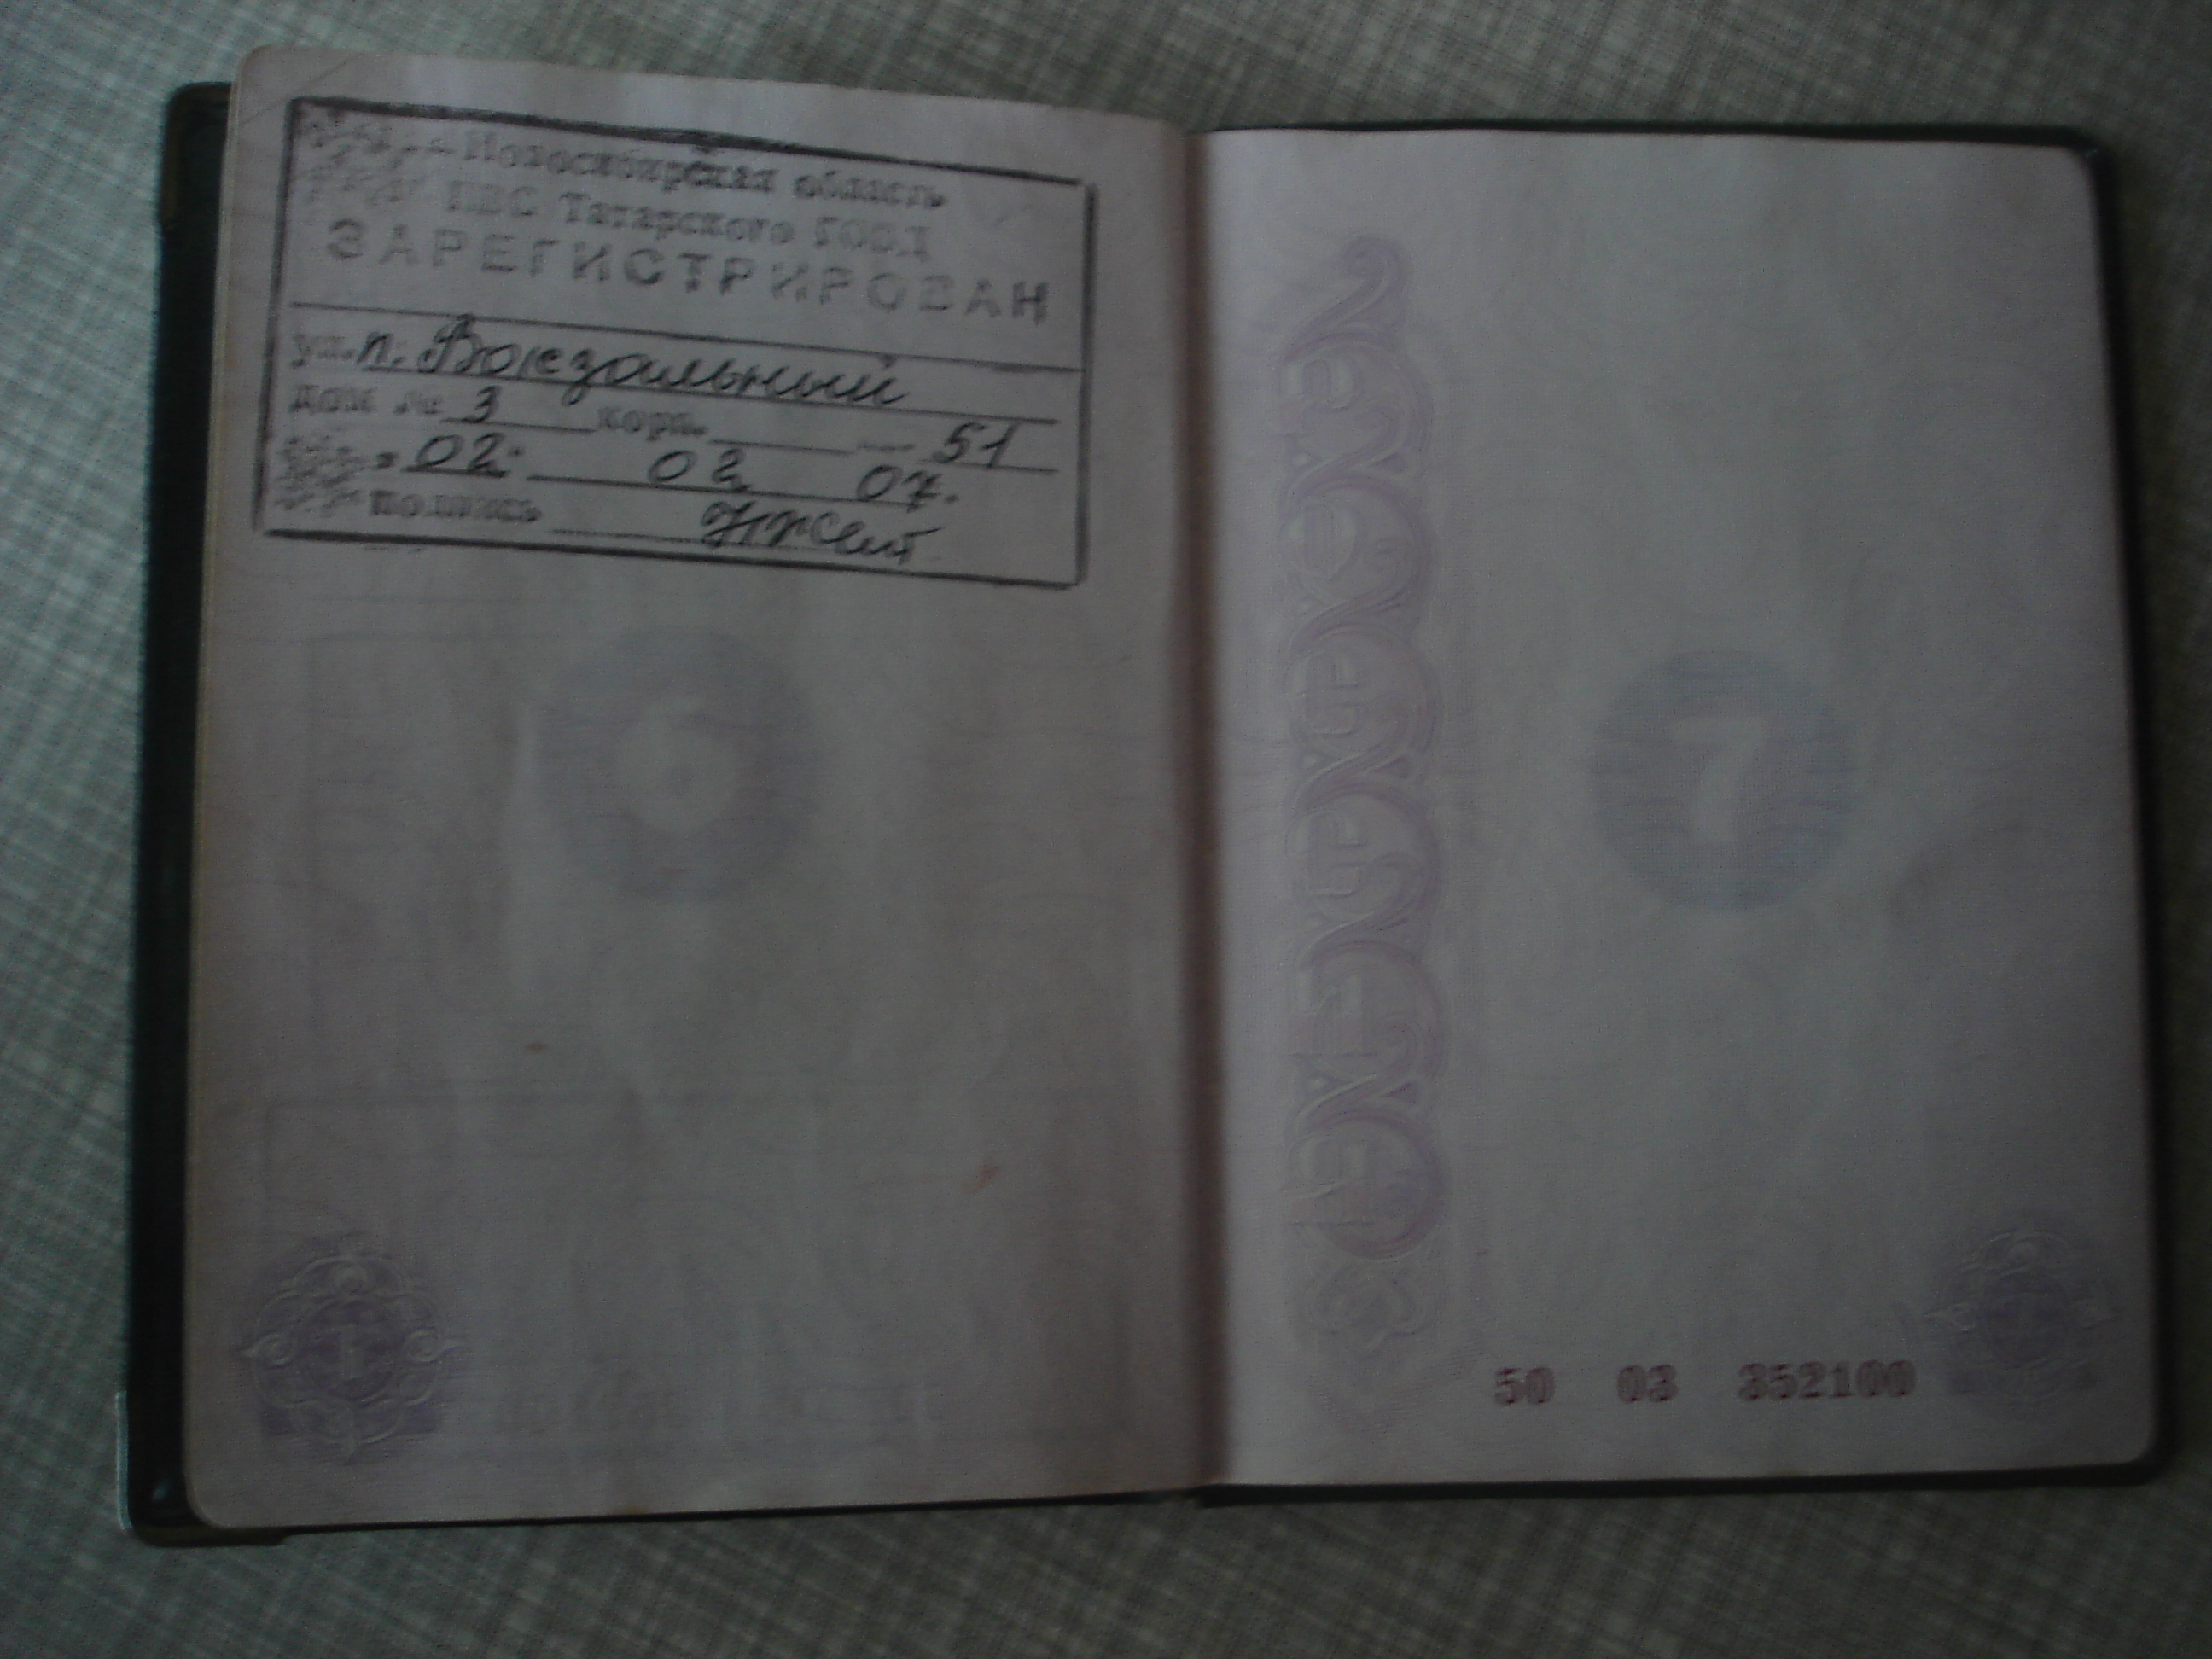 Новосибирская область
ПВС Татарского ГОВД
ЗАРЕГИСТРИРОВАН
ул. п. Вокзальный
дом № 3 корп. 51
02. 02 07.
подпись
6
7
50 03 352100